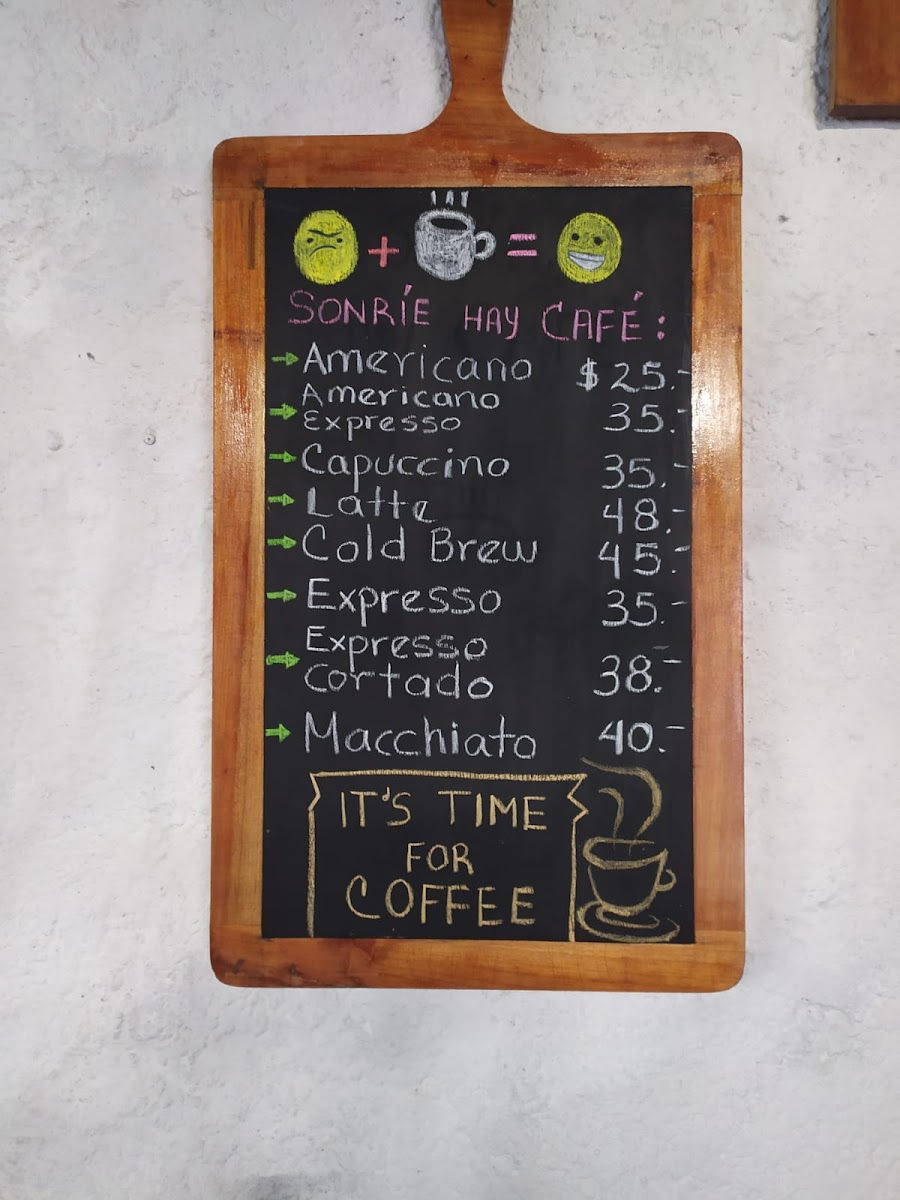 + =
SONRÍE HAY CAFÉ:
Americano $25.-
Americano
Expresso 35.-
Capuccino 35.-
Latte 48.-
Cold Brew 45.-
Expresso 35.-
Expresso
Cortado 38.-
Macchiato 40.-
IT'S TIME
FOR
COFFEE